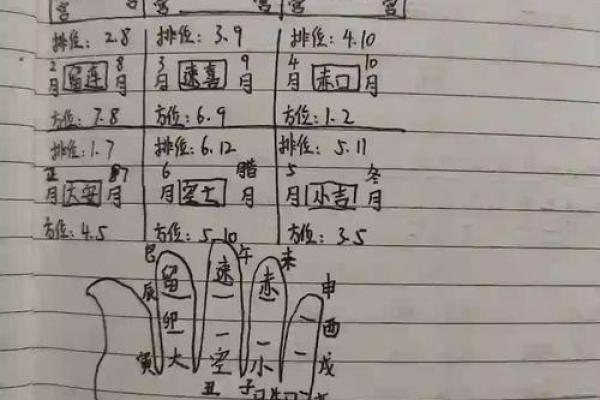 宫 宫 宫 宫
排位:2.8 排位:3.9 排位:4.10
2月 留连 8月 3月 速喜 9月 4月 赤口 10月
方位:7.8 方位:6.9 方位:1.2
排位:1.7 排位:6.12 排位:5.11
正月 大安 7月 6月 空亡 腊月 5月 小吉 冬月
方位:4.5 方位:5.10 方位:3.5
巳 午 未
辰 留 速 赤 申
卯 酉
寅 大 空 小 戌
丑 子